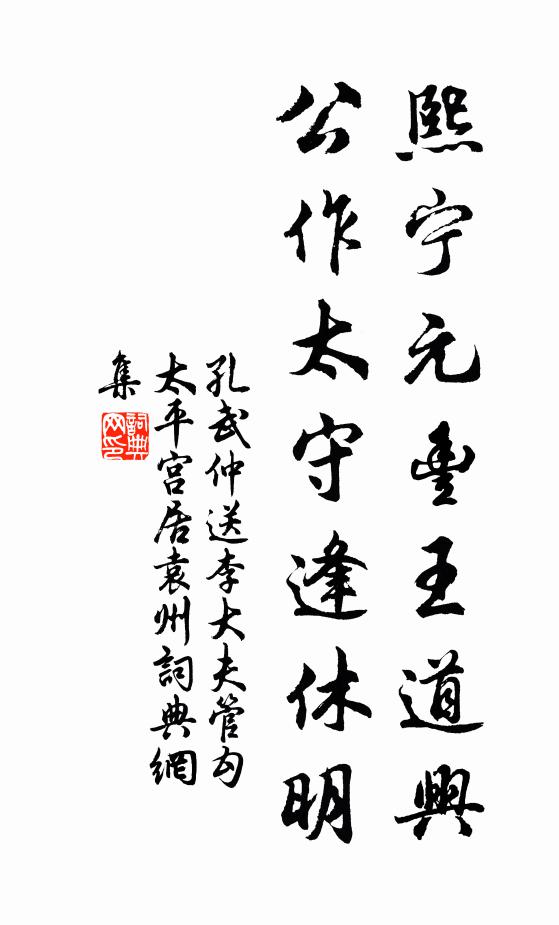 熙宁元豊王道興
公作太守逢休明
孔武仲送李大夫管勾
太平宫居袁州詞典網
集
詞典
网印